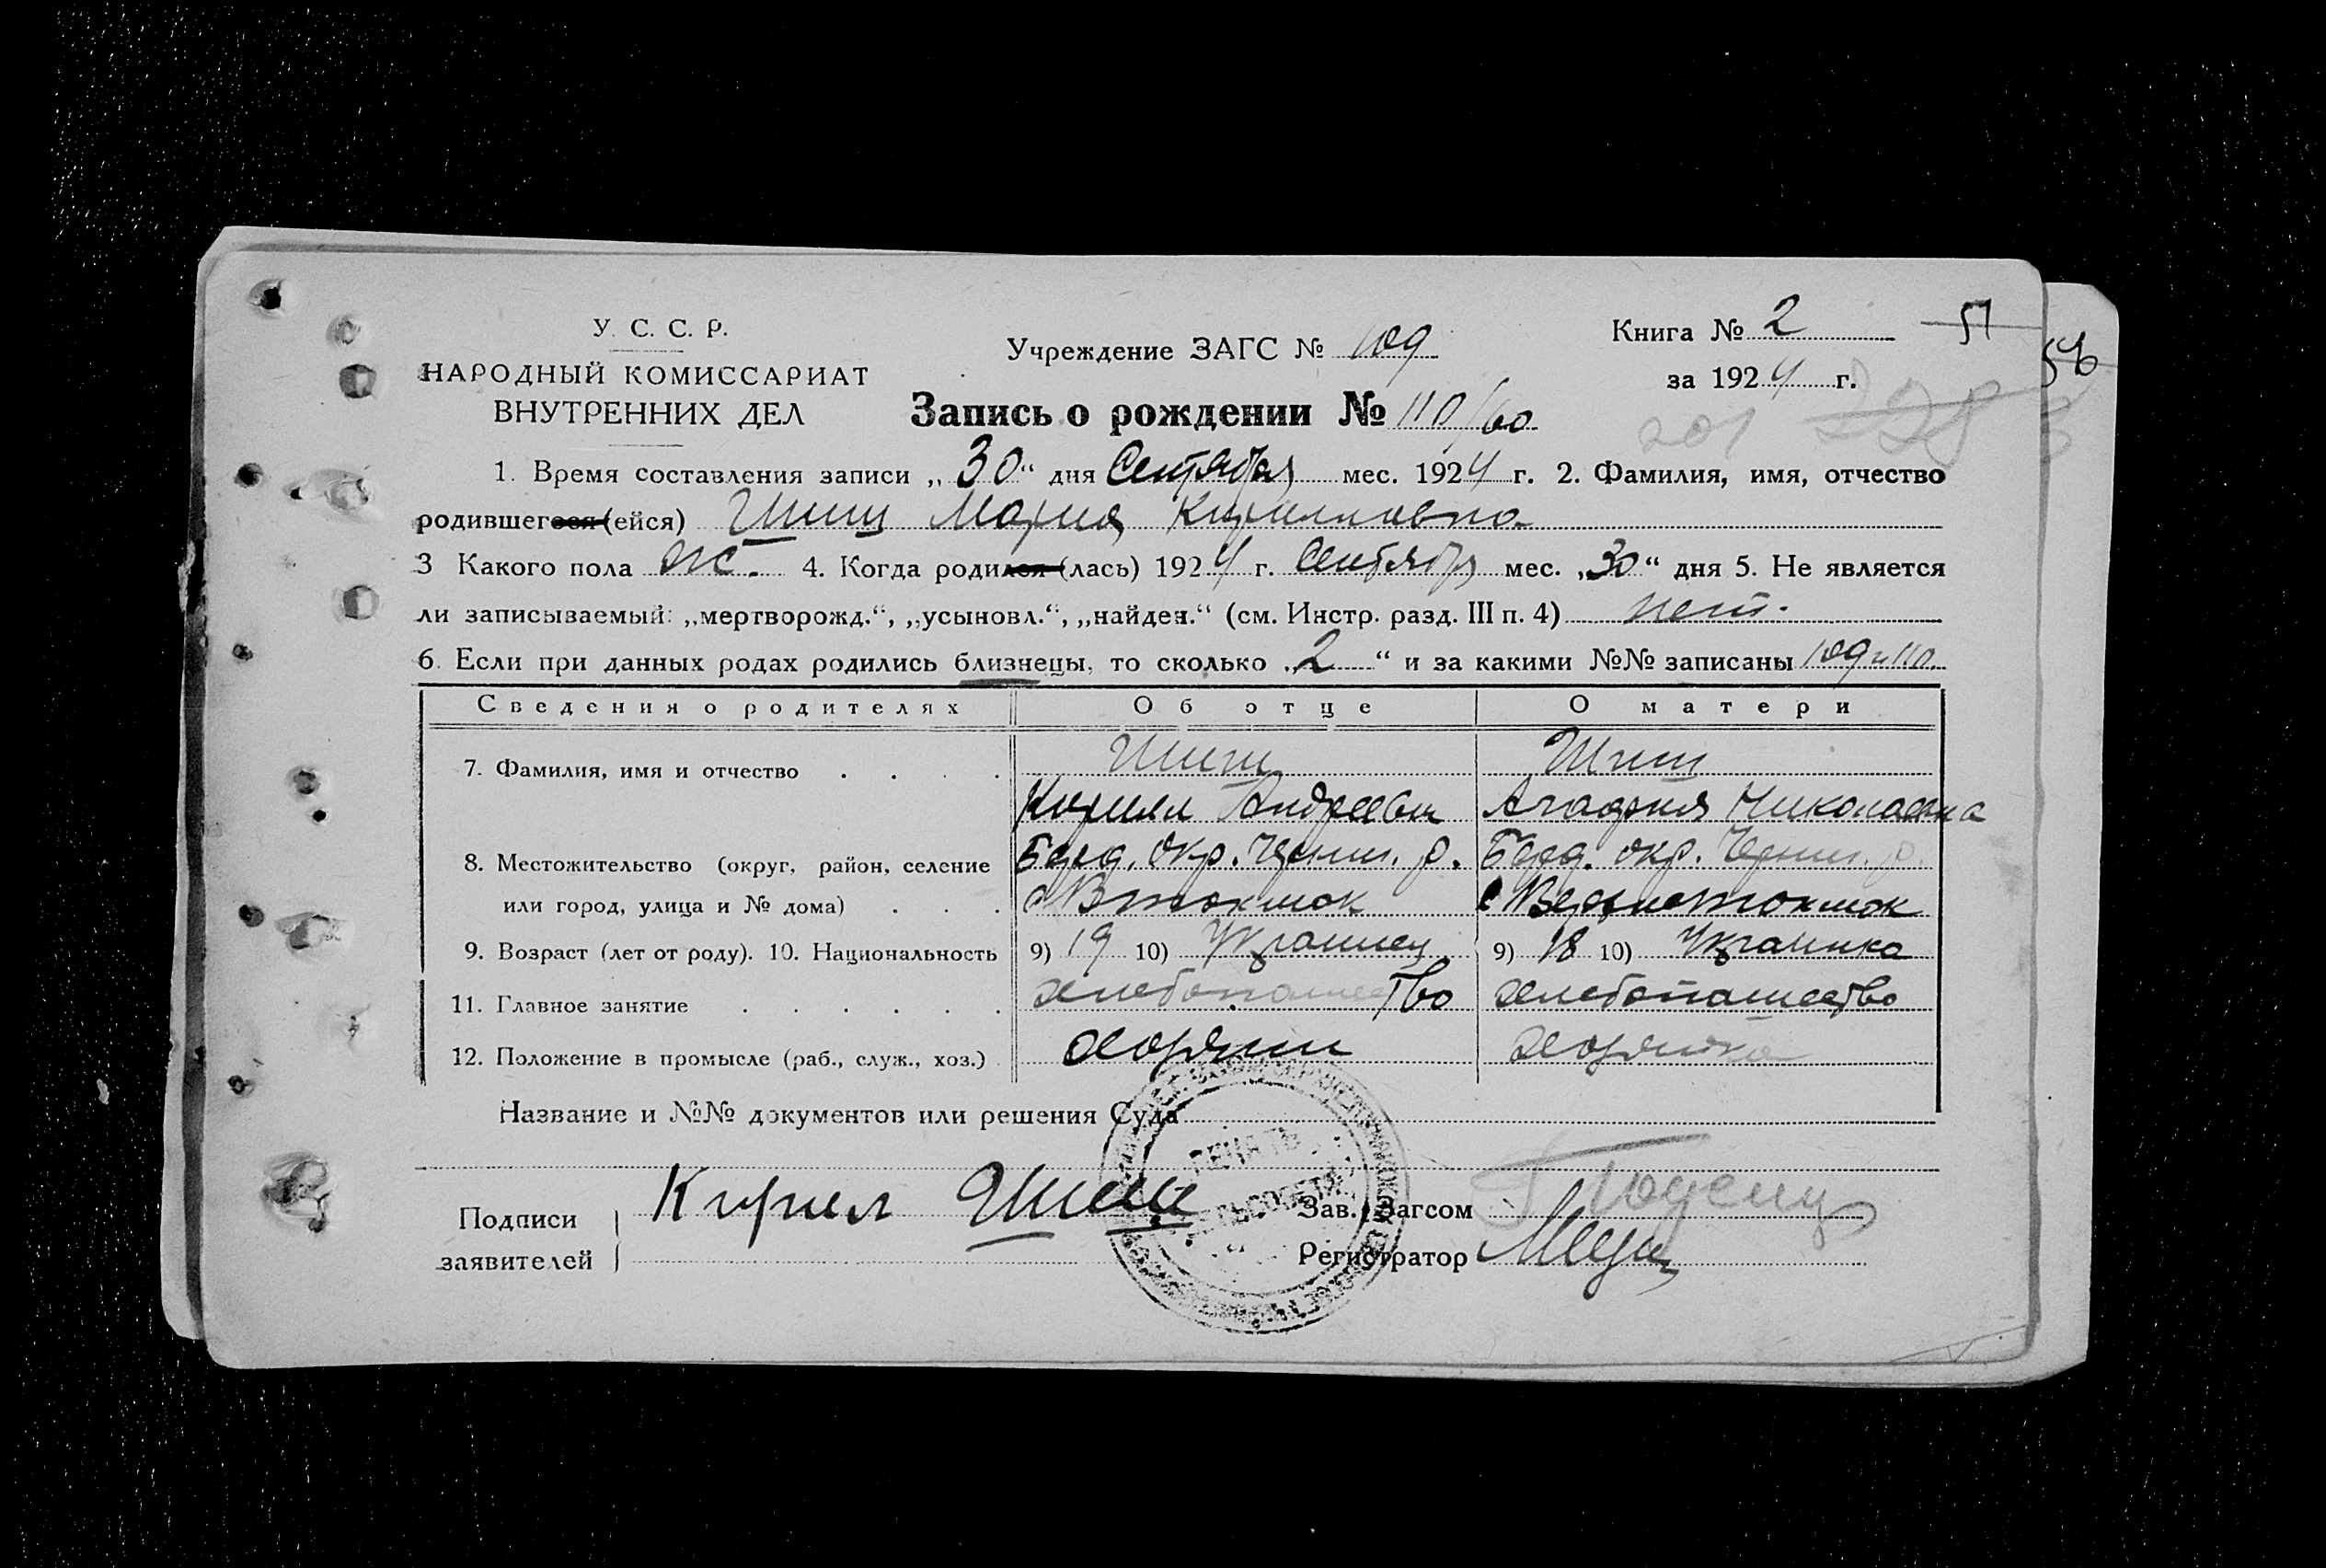 У. С. С. Р.
НАРОДНЫЙ КОМИССАРИАТ
ВНУТРЕННИХ ДЕЛ
Учреждение ЗАГС № 109
Книга № 2
51
56
за 1924 г.
Запись о рождении № 110/60
201 228
1. Время составления записи „30“ дня Сентября мес. 1924 г. 2. Фамилия, имя, отчество
родившегося (ейся) Шиш Мария Кирилловна
3 Какого пола Ж. 4. Когда родился (лась) 1924 г. Сентября мес. „30“ дня 5. Не является
ли записываемый: „мертворожд.“, „усыновл.“, „найден.“ (см. Инстр. разд. III п. 4) нет.
6. Если при данных родах родились близнецы, то сколько „2“ и за какими №№ записаны 109 и 110.
Сведения о родителях Об отце О матери
7. Фамилия, имя и отчество . . . . Шиш Шиш
Кирилл Андреевич Агафия Николаевна
8. Местожительство (округ, район, селение Берд. Окр. Черниг. р. Берд. окр. Черниг. р.
или город, улица и № дома) . . . с Втокмак с Верхнетокмак
9. Возраст (лет от роду). 10. Национальность 9) 19 10) Украинец 9) 18 10) Украинка
11. Главное занятие . . . . . . хлебопашество хлебопашество
12. Положение в промысле (раб., служ., хоз.) хозяин хозяйка
Название и №№ документов или решения Суда
Подписи заявителей Кирил Шиш
Зав. Загсом
Регистратор